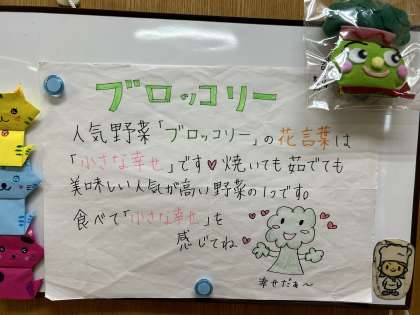 ブロッコリー
人気野菜「ブロッコリー」の花言葉は
「小さな幸せ」です♥焼いても茹でても
美味しい人気が高い野菜の1つです。
食べて「小さな幸せ」を
感じてね♡
幸せだぁ〜